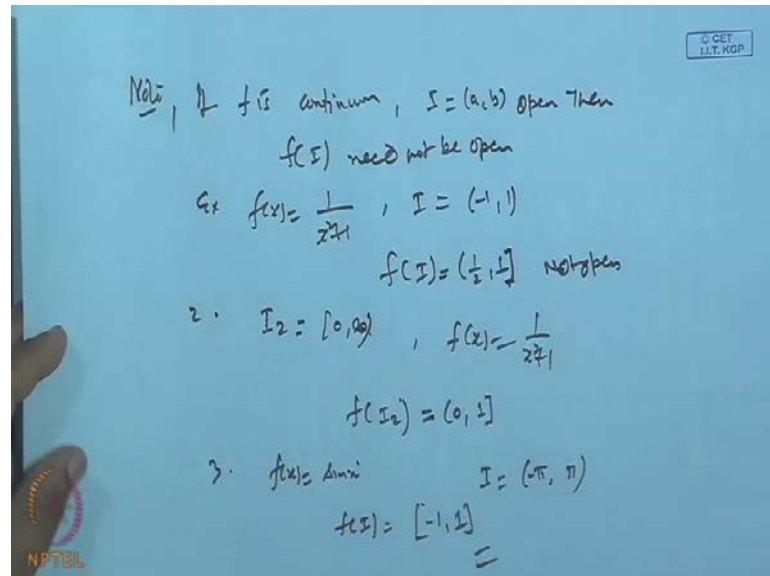 © CET
I.I.T. KGP
Note, If f is continuous, I = (a, b) open Then
f(I) need not be open
Ex f(x) = 1/(x²+1), I = (-1, 1)
f(I) = (1/2, 1] Not open
2. I₂ = [0, ∞), f(x) = 1/(x²+1)
f(I₂) = (0, 1]
3. f(x) = sinx I = (-π, π)
f(I) = [-1, 1]
NPTEL